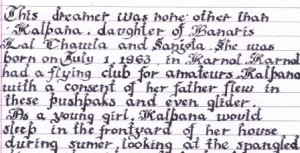 This dreamer was none other than
Kalpana. daughter of Banaris
Lal Chawla and Sanjola. She was
born on July 1, 1963, in Karnal. Karnal
had a flying club for amateurs. Kalpana
with a consent of her father flew in
these pushpaks and even glider.
As a young girl, Kalpana would
sleep in the frontyard of her house
during sumer, looking at the spangled